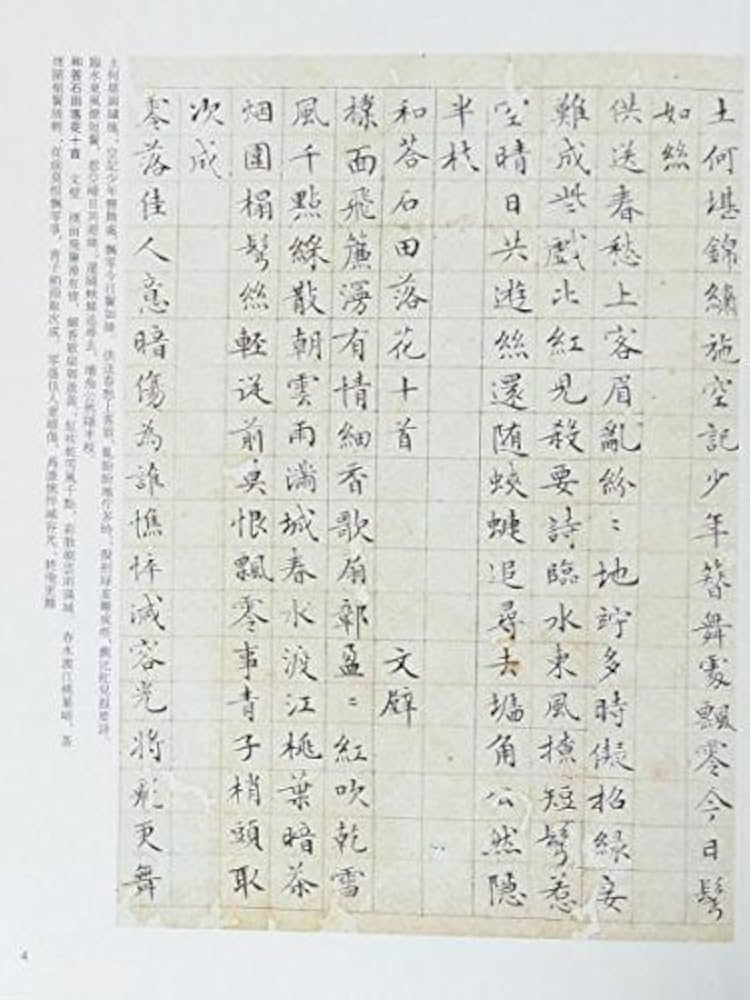 土何堪錦繡施空記少年簪舞處飄零今日鬂
如絲
供送春愁上客眉亂紛〻地竚多時儗招綠妾
難成些戲比紅兒殺要詩臨水東風撩短鬂惹
空晴日共遊絲還隨蛺蝶追尋去墻角公然隱
半枝
和荅石田落花十首 文壁
撲面飛簾漫有情細香歌扇鄣盈〻紅吹乾雪
風千點綵散朝雲雨滿城春水渡江桃葉暗茶
烟圍榻鬂絲輕從前莫恨飄零事青子梢頭取
次成
零落佳人意暗傷為誰憔悴減容光將飛更舞
和答石田落花十首 文壁
4